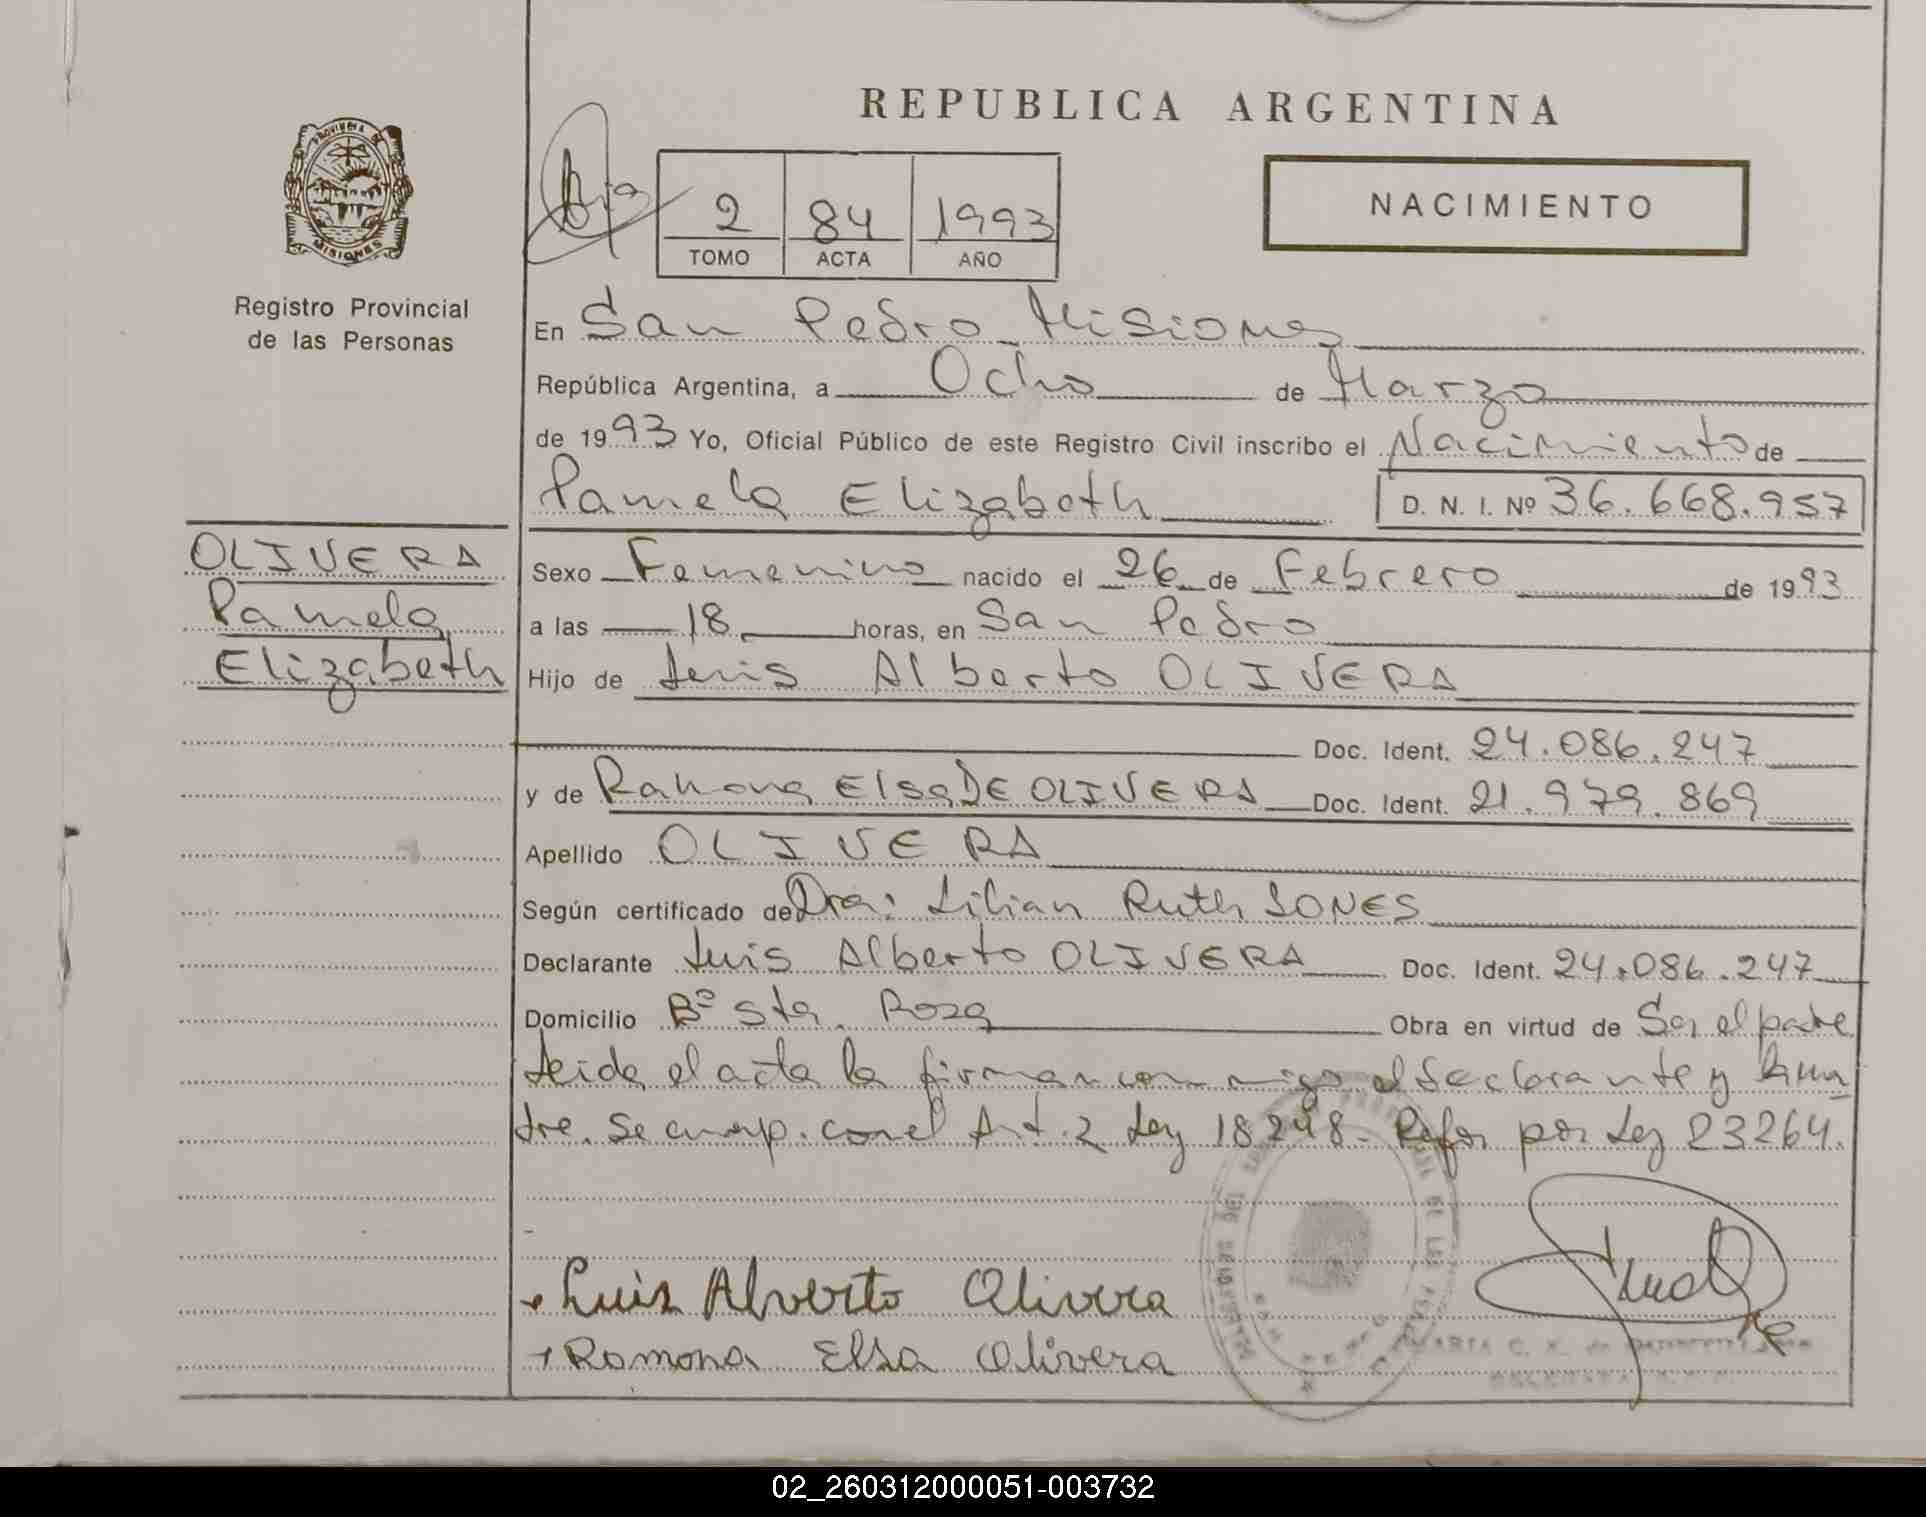 REPUBLICA ARGENTINA
PROVINCIA DE
MISIONES
Registro Provincial
de las Personas
2 84 1993
TOMO ACTA AÑO
NACIMIENTO
En San Pedro Misiones
República Argentina, a Ocho de Marzo
de 1993 Yo, Oficial Público de este Registro Civil inscribo el Nacimiento de
Pamela Elizabeth D. N. I. Nº 36.668.957
OLIVERA
Pamela
Elizabeth
Sexo Femenino nacido el 26 de Febrero de 1993
a las 18 horas, en San Pedro
Hijo de Luis Alberto OLIVERA
Doc. Ident. 24.086.247
y de Ramona Elsa DE OLIVERA Doc. Ident. 21.979.869
Apellido OLIVERA
Según certificado de Dra: Lilian Ruth JONES
Declarante Luis Alberto OLIVERA Doc. Ident. 24.086.247
Domicilio Bº Sta. Rosa Obra en virtud de Ser el padre
Leida el acta la firman conmigo el declarante y la ma
dre. Se cump. con el Art. 2 Ley 18248. Refor por Ley 23264.
Luis Alverto Olivera
Ramona Elsa Olivera
MARIA C. K. de
02_260312000051-003732